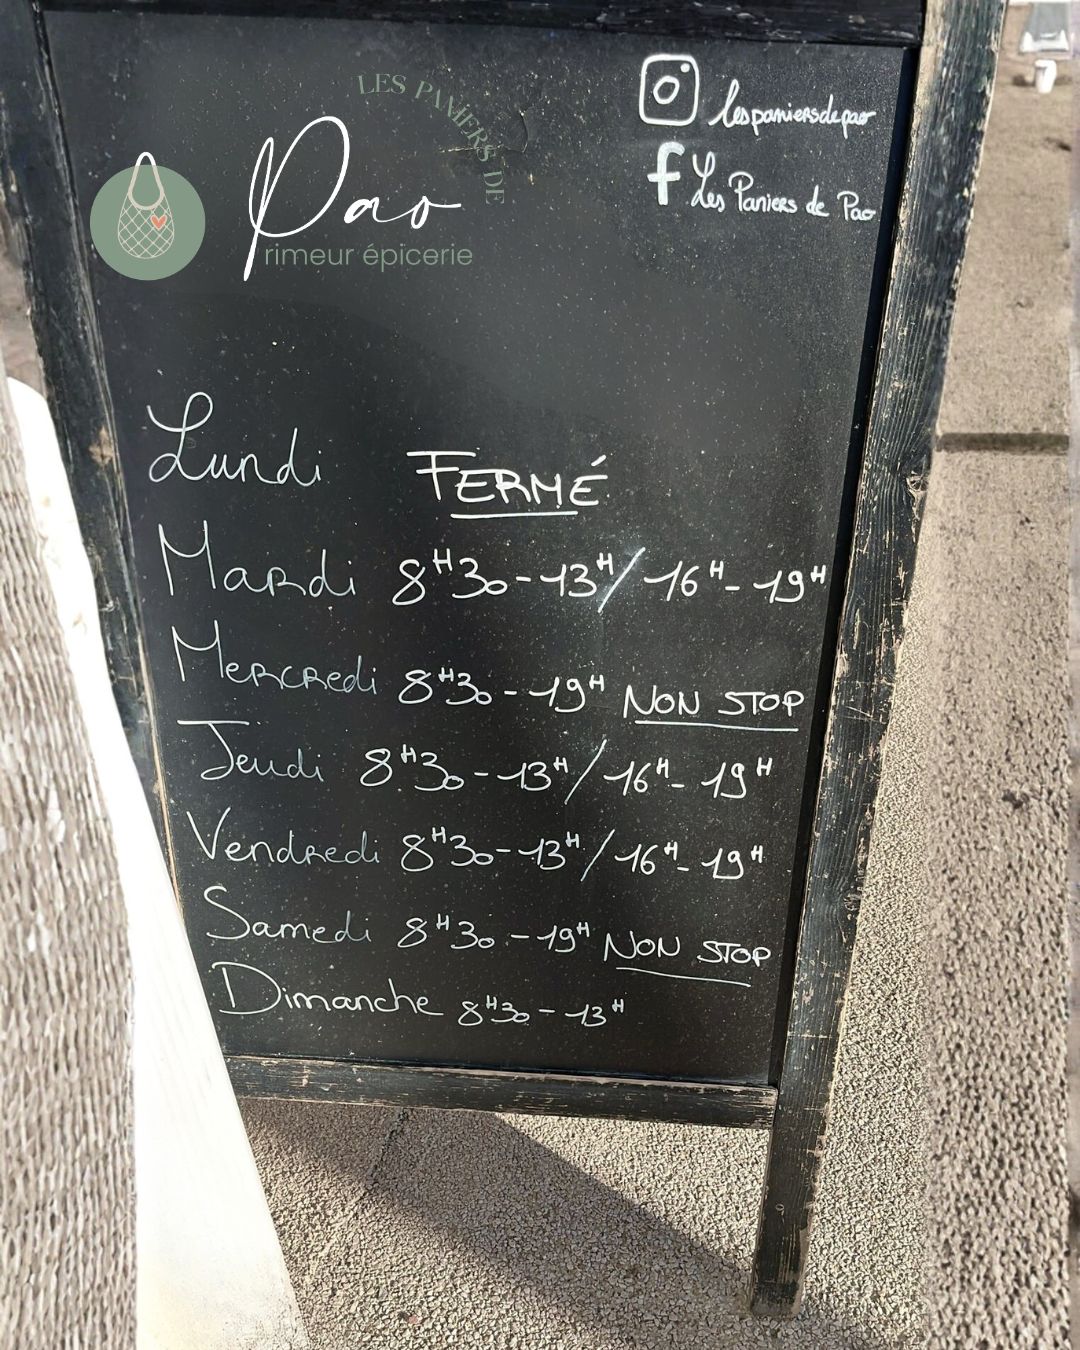 LES PANiERS DE
Pao
rimeur épicerie
lespaniersdepao
f Les Paniers de Pao
Lundi FERMÉ
Mardi 8H30-13H/16H-19H
Mercredi 8H30-19H NON STOP
Jeudi 8H30-13H/16H-19H
Vendredi 8H30-13H/16H-19H
Samedi 8H30-19H NON STOP
Dimanche 8H30-13H